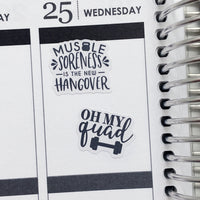 25 WEDNESDAY
MUSCLE
SORENESS
IS THE NEW
HANGOVER
OH MY
quad